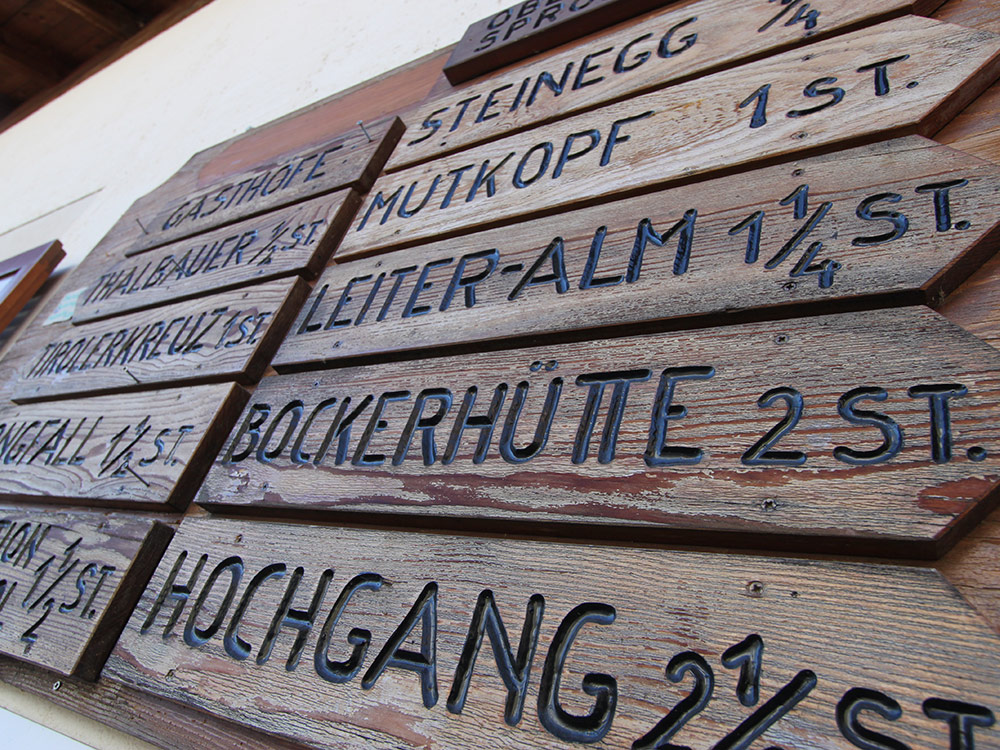 STEINEGG
MUTKOPF 1 ST.
LEITER-ALM 1 1/4 ST.
BOCKERHÜTTE 2 ST.
HOCHGANG 2 1/2 ST
GASTHÖFE
THALBAUER 1/2 ST.
TIROLERKREUZ 1 ST.
NGFALL 1 1/2 ST.